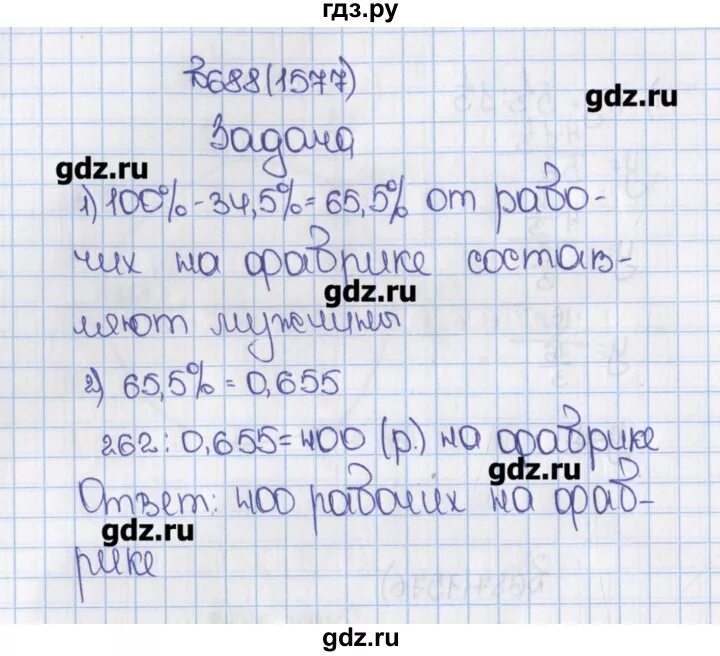 гдз.ру
№688(1577)
gdz.ru
Задача
gdz.ru
1) 100% - 34,5% = 65,5% от рабо-
чих на фабрике состав-
gdz.ru
ляют мужчины
2) 65,5% = 0,655
262 : 0,655 = 400 (р.) на фабрике
gdz.ru
Ответ: 400 рабочих на фаб-
gdz.ru
рике
gdz.ru